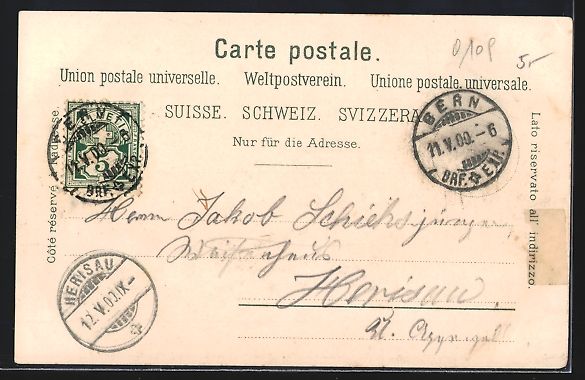 Carte postale.
Union postale universelle. Weltpostverein. Unione postale universale.
SUISSE. SCHWEIZ. SVIZZERA
Nur für die Adresse.
Côté réservé à l'adresse.
Lato riservato all' indirizzo.
HELVETIA
5
BERN
11.V.00.-6
BRF. EXP.
HERISAU
12.V.00.IX-
Herrn Jakob
Waisenhaus
Herisau
Kt. Appenzell